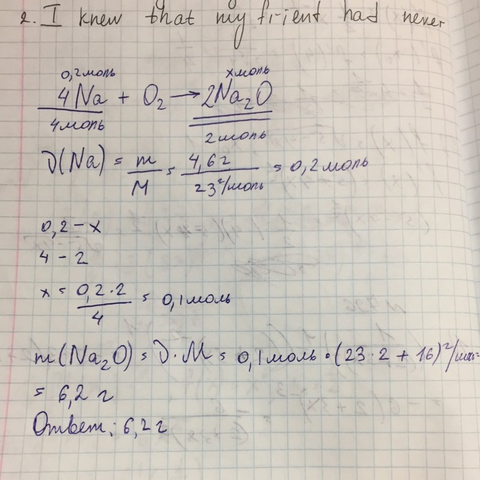 2. I knew that my frient had never
0,2моль хмоль
4Na + O₂ → 2Na₂O
4моль 2моль
ν(Na) = m/M = 4,6г/23г/моль = 0,2моль
0,2 – х
4 – 2
х = 0,2·2/4 = 0,1моль
m(Na₂O) = ν·M = 0,1моль·(23·2 + 16)г/моль=
= 6,2 г
Ответ: 6,2г